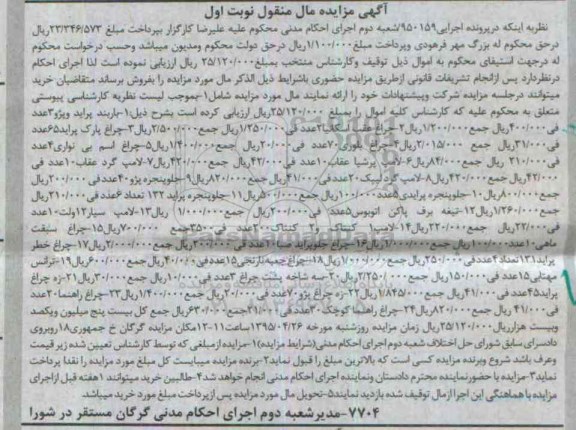 آگهی مزایده مال منقول نوبت اول
نظریه اینکه درپرونده اجرایی۹۵۰۱۵۹/شعبه دوم اجرای احکام مدنی محکوم علیه علیرضا کارگزار بپرداخت مبلغ ۲۳/۳۴۶/۵۷۳ریال
درحق محکوم له بزرگ مهر فرهودی وپرداخت مبلغ۱/۱۰۰/۰۰۰ریال درحق دولت محکوم ومدیون میباشد وحسب درخواست محکوم
له درجهت استیفای محکوم به اموال ذیل توقیف وکارشناس منتخب بمبلغ ۲۵/۱۲۰/۰۰۰ ریال ارزیابی نموده است لذا اجرای احکام
درنظردارد پس ازانجام تشریفات قانونی ازطریق مزایده حضوری باشرایط ذیل الذکر مال مورد مزایده را بفروش برساند متقاضیان خرید
میتوانند درجلسه مزایده شرکت وپیشنهادات خود را ارائه نمایند مال مورد مزایده شامل۱-بموجب لیست نظریه کارشناسی پیوستی
متعلق به محکوم علیه که کارشناس کلیه اموال را بمبلغ ۲۵/۱۲۰/۰۰۰ریال ارزیابی کرده است بشرح ذیل:۱-باربند پراید ویژه۳عدد
فی۴۰۰/۰۰۰ریال جمع۱/۲۰۰/۰۰۰ریال۲-چراغ عقاب ۲عدد فی۱/۲۵۰/۰۰۰ریال جمع۲/۵۰۰/۰۰۰ریال۳-چراغ پارک پراید۶۵عدد
فی۳۱/۰۰۰ریال جمع ۲/۰۱۵/۰۰۰ریال۴-چراغ بلوری۷۰عدد فی۲۰/۰۰۰ریال جمع۱/۴۰۰/۰۰۰ریال۵-چراغ اسم بی نواری۴عدد
فی۲۱۰/۰۰۰ ریال جمع۸۴۰/۰۰۰ریال۶-لامپ پرشیا عقاب۱۰عدد فی۴۲/۰۰۰ریال جمع۴۲۰/۰۰۰ریال۷-لامپ گرد عقاب۱۰عدد فی
۴۲/۰۰۰ریال جمع۴۲۰/۰۰۰ریال۸-لامپ گردلبیک۲۰عددفی۴۱/۰۰۰ریال جمع۸۲۰/۰۰۰ریال۹-جلوپنجره پژو۴۰عددفی۲۰۰/۰۰۰ریال
جمع۸۰۰/۰۰۰ریال ۱۰-جلوپنجره پراید۵عدد فی۱۰۰/۰۰۰ریال جمع۵۰۰/۰۰۰ریال۱۱-جلوپنجره پراید ۱۳۲ تعداد۶عدد فی۲۱۰/۰۰۰ریال
جمع۱/۲۶۰/۰۰۰ریال۱۲-تیغه برف پاکن اتوبوس۵عدد فی۲۰۰/۰۰۰ریال جمع۱/۰۰۰/۰۰۰ ریال۱۳-لامپ سیار۱۲ولت۱۰عدد
فی۲۲/۰۰۰ریال جمع۲۲۰/۰۰۰ریال۱۴-لامپ۱ کنتاک و۲ کنتاک۲۰۰عدد فی۳۵۰۰جمع ۷۰۰/۰۰۰ریال۱۵-چراغ سبقت
ماهی۱۰عدد۱۰۰/۰۰۰ریال جمع۱/۰۰۰/۰۰۰ریال۱۶-چراغ جلوپراید ساده۱۰عدد فی۲۰۰/۰۰۰ریال جمع۲/۰۰۰/۰۰۰ریال۱۷-چراغ خطر
پراید۱۳۱تعداد۴عددفی۲۵۰/۰۰۰ریال جمع۱/۰۰۰/۰۰۰ریال۱۸-چراغ جعبه نارنجی۱۵عددفی۴۰/۰۰۰ریال جمع۶۰۰/۰۰۰ریال۱۹-ترانس
مهتابی۱۵عدد فی۱۵۰/۰۰۰ریال جمع۲/۲۵۰/۰۰۰ریال۲۰-سه شاخه پشت چراغ ۳عدد فی۱۰/۰۰۰ریال جمع۳۰/۰۰۰ریال۲۱-زه چراغ
پراید۴۵عدد فی۴۱/۰۰۰ریال جمع۱/۸۴۵/۰۰۰ریال۲۲-زه چراغ پژو۷۰عدد فی۲۰/۰۰۰ریال جمع۱/۴۰۰/۰۰۰ریال۲۳-چراغ راهنما۲۰عدد
فی۴۱/۰۰۰ ریال جمع۸۲۰/۰۰۰ریال۲۴-چراغ راهنما کوچک۳۰عدد فی۲۱/۰۰۰جمع۶۳۰/۰۰۰ریال جمع کل بیست پنج میلیون ویکصد
وبیست هزارریال۲۵/۱۲۰/۰۰۰ریال زمان مزایده روزشنبه مورخه ۱۳۹۵/۰۴/۲۶ساعت۱۱-۱۲مکان مزایده گرگان خ جمهوری۱۸روبروی
دادسرای سابق شورای حل اختلاف شعبه دوم اجرای احکام مدنی(شرایط مزایده)۱-مزایده ازمبلغی که توسط کارشناس تعیین شده زیرقیمت
وعرف باشد شروع وبرنده مزایده کسی است که بالاترین مبلغ را قبول نماید۲-برنده مزایده میبایست کل مبلغ مورد مزایده را نقدا پرداخت
نماید۳-مزایده با حضورنماینده محترم دادستان ونماینده اجرای احکام مدنی انجام خواهد شد۴-طالبین خرید میتوانند ۱هفته قبل ازاجرای
مزایده با هماهنگی این اجرا ازمال توقیف شده بازدید نمایند۵-تحویل مال مورد مزایده پس ازپرداخت مبلغ مورد خرید میباشد.
۷۷۰۴-مدیرشعبه دوم اجرای احکام مدنی گرگان مستقر در شورا